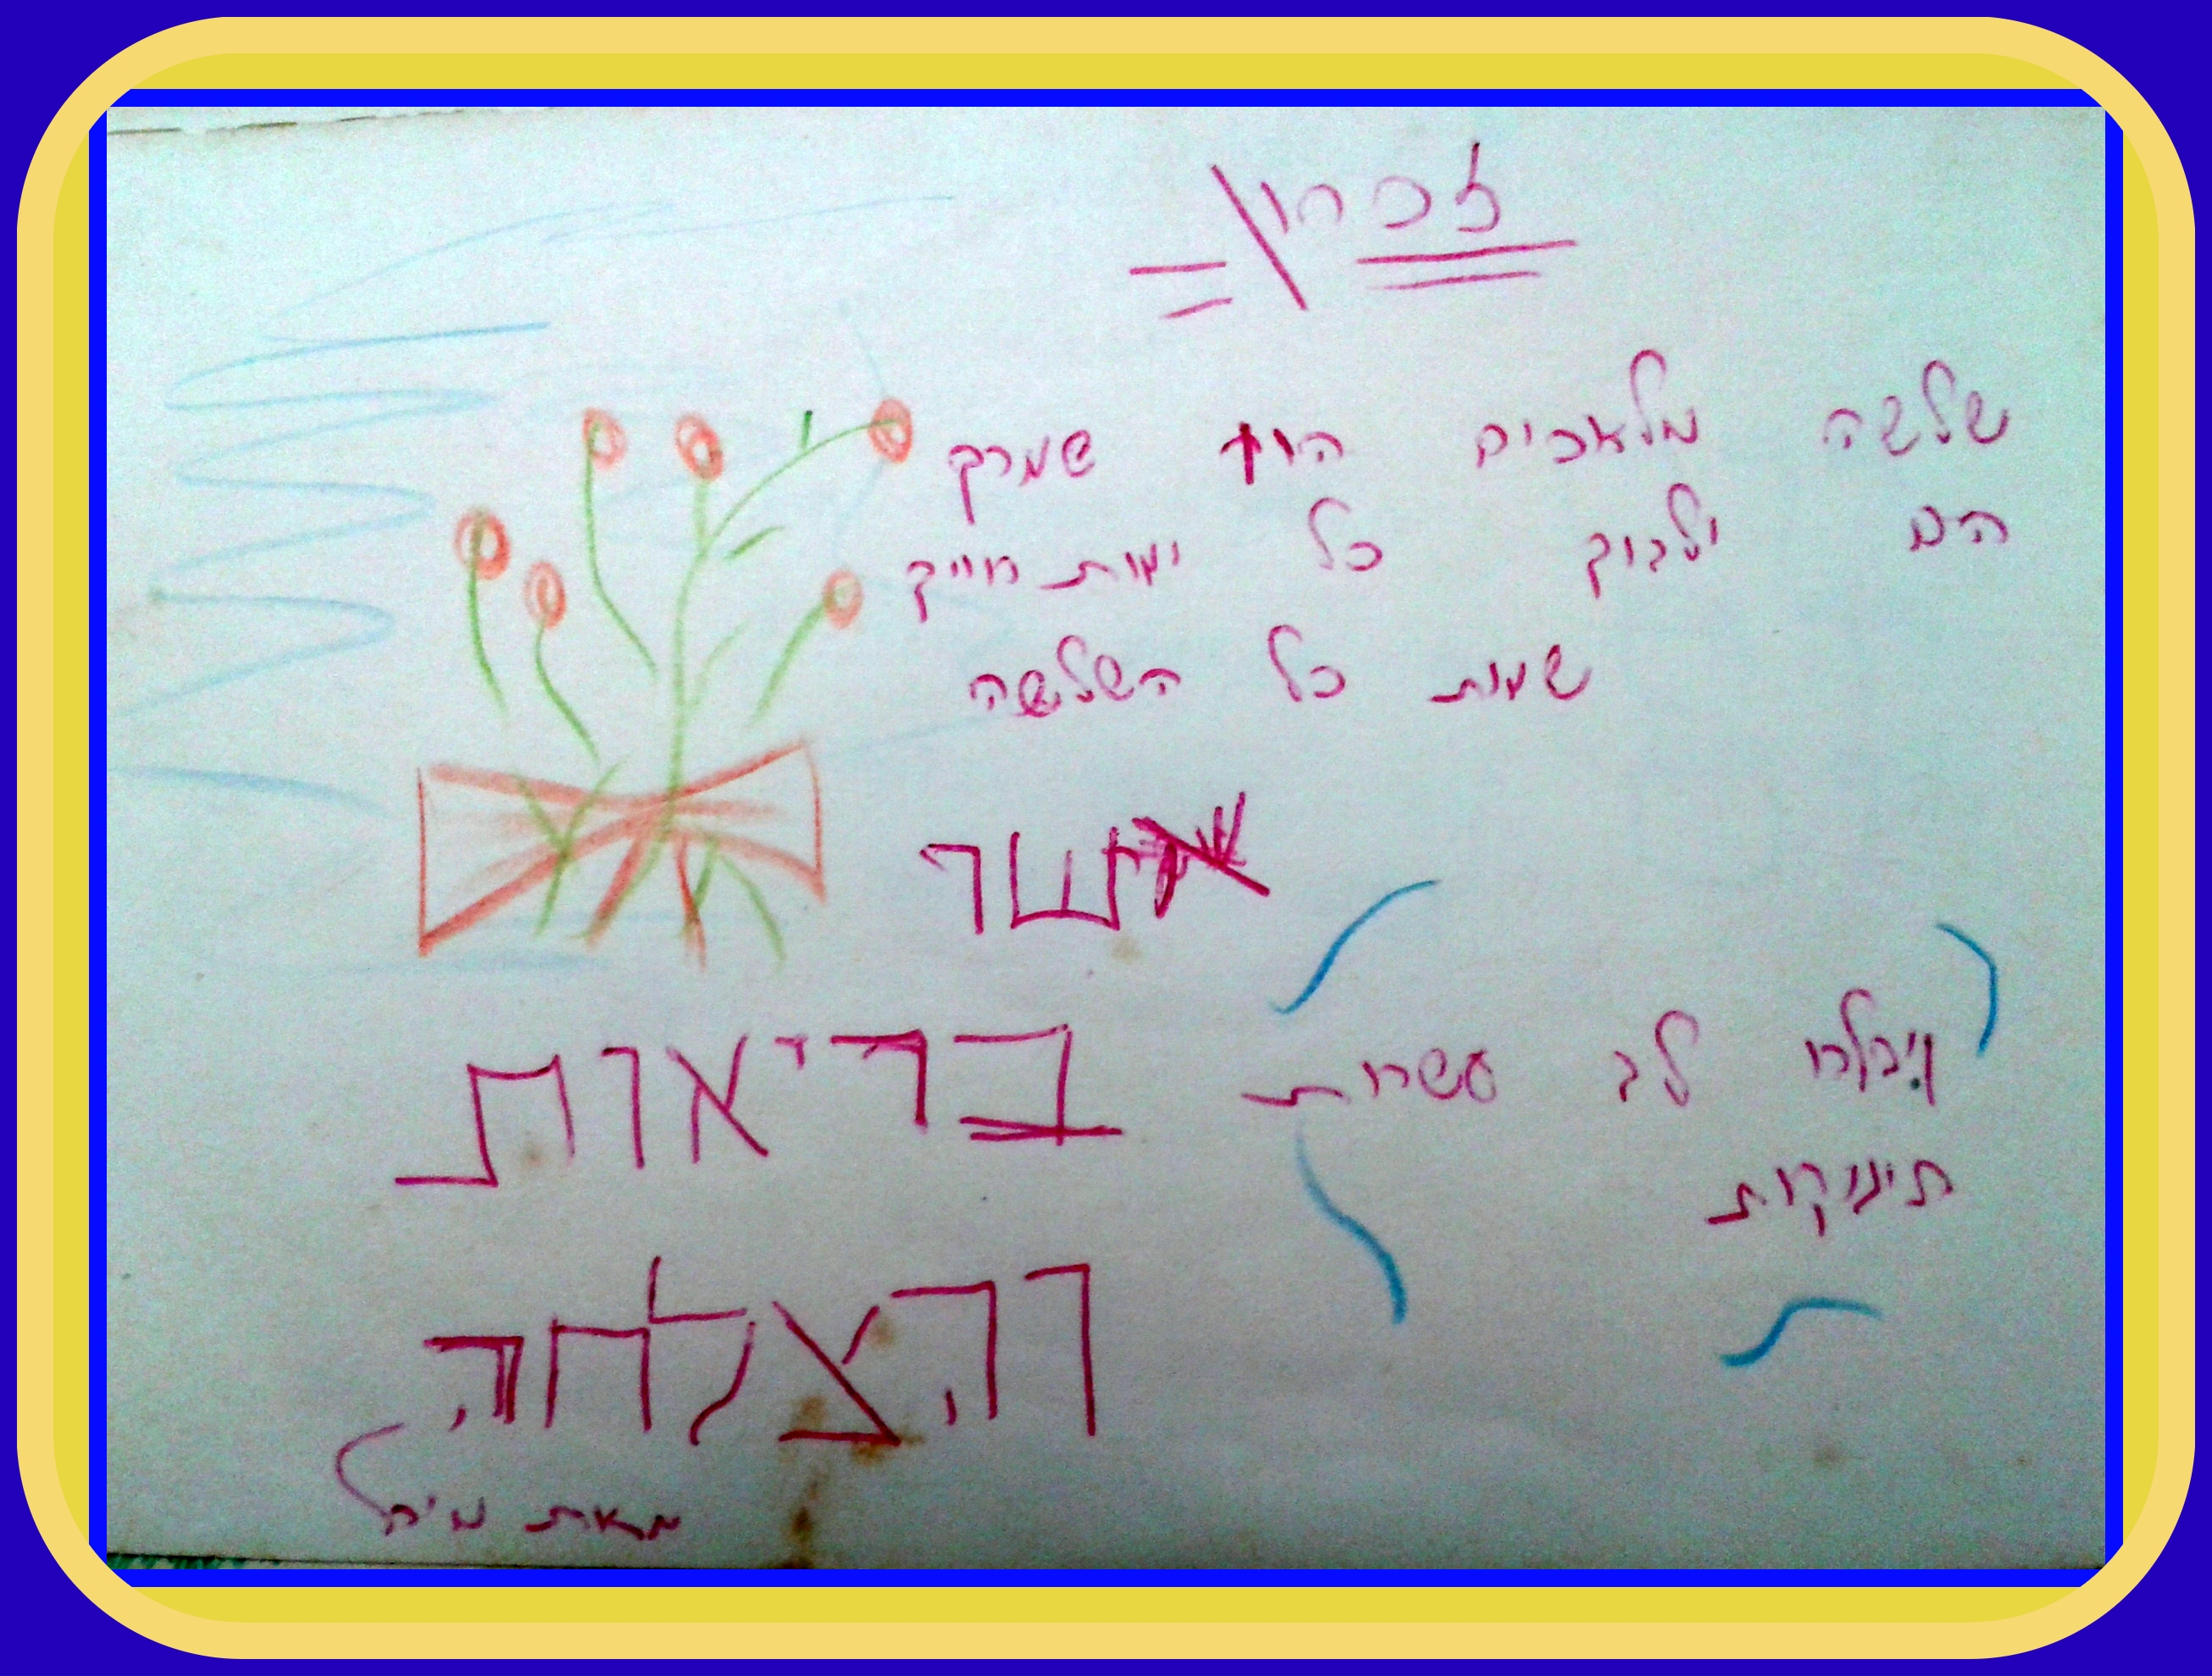 זכרון
שלשה מלאכים היו שמרך
הם ילכוך כל ימות חייך
שמות כל השלשה
אשר
בריאות
והצלחה
ויבלרו לב עשרות
תינוקות
מאת מיכל